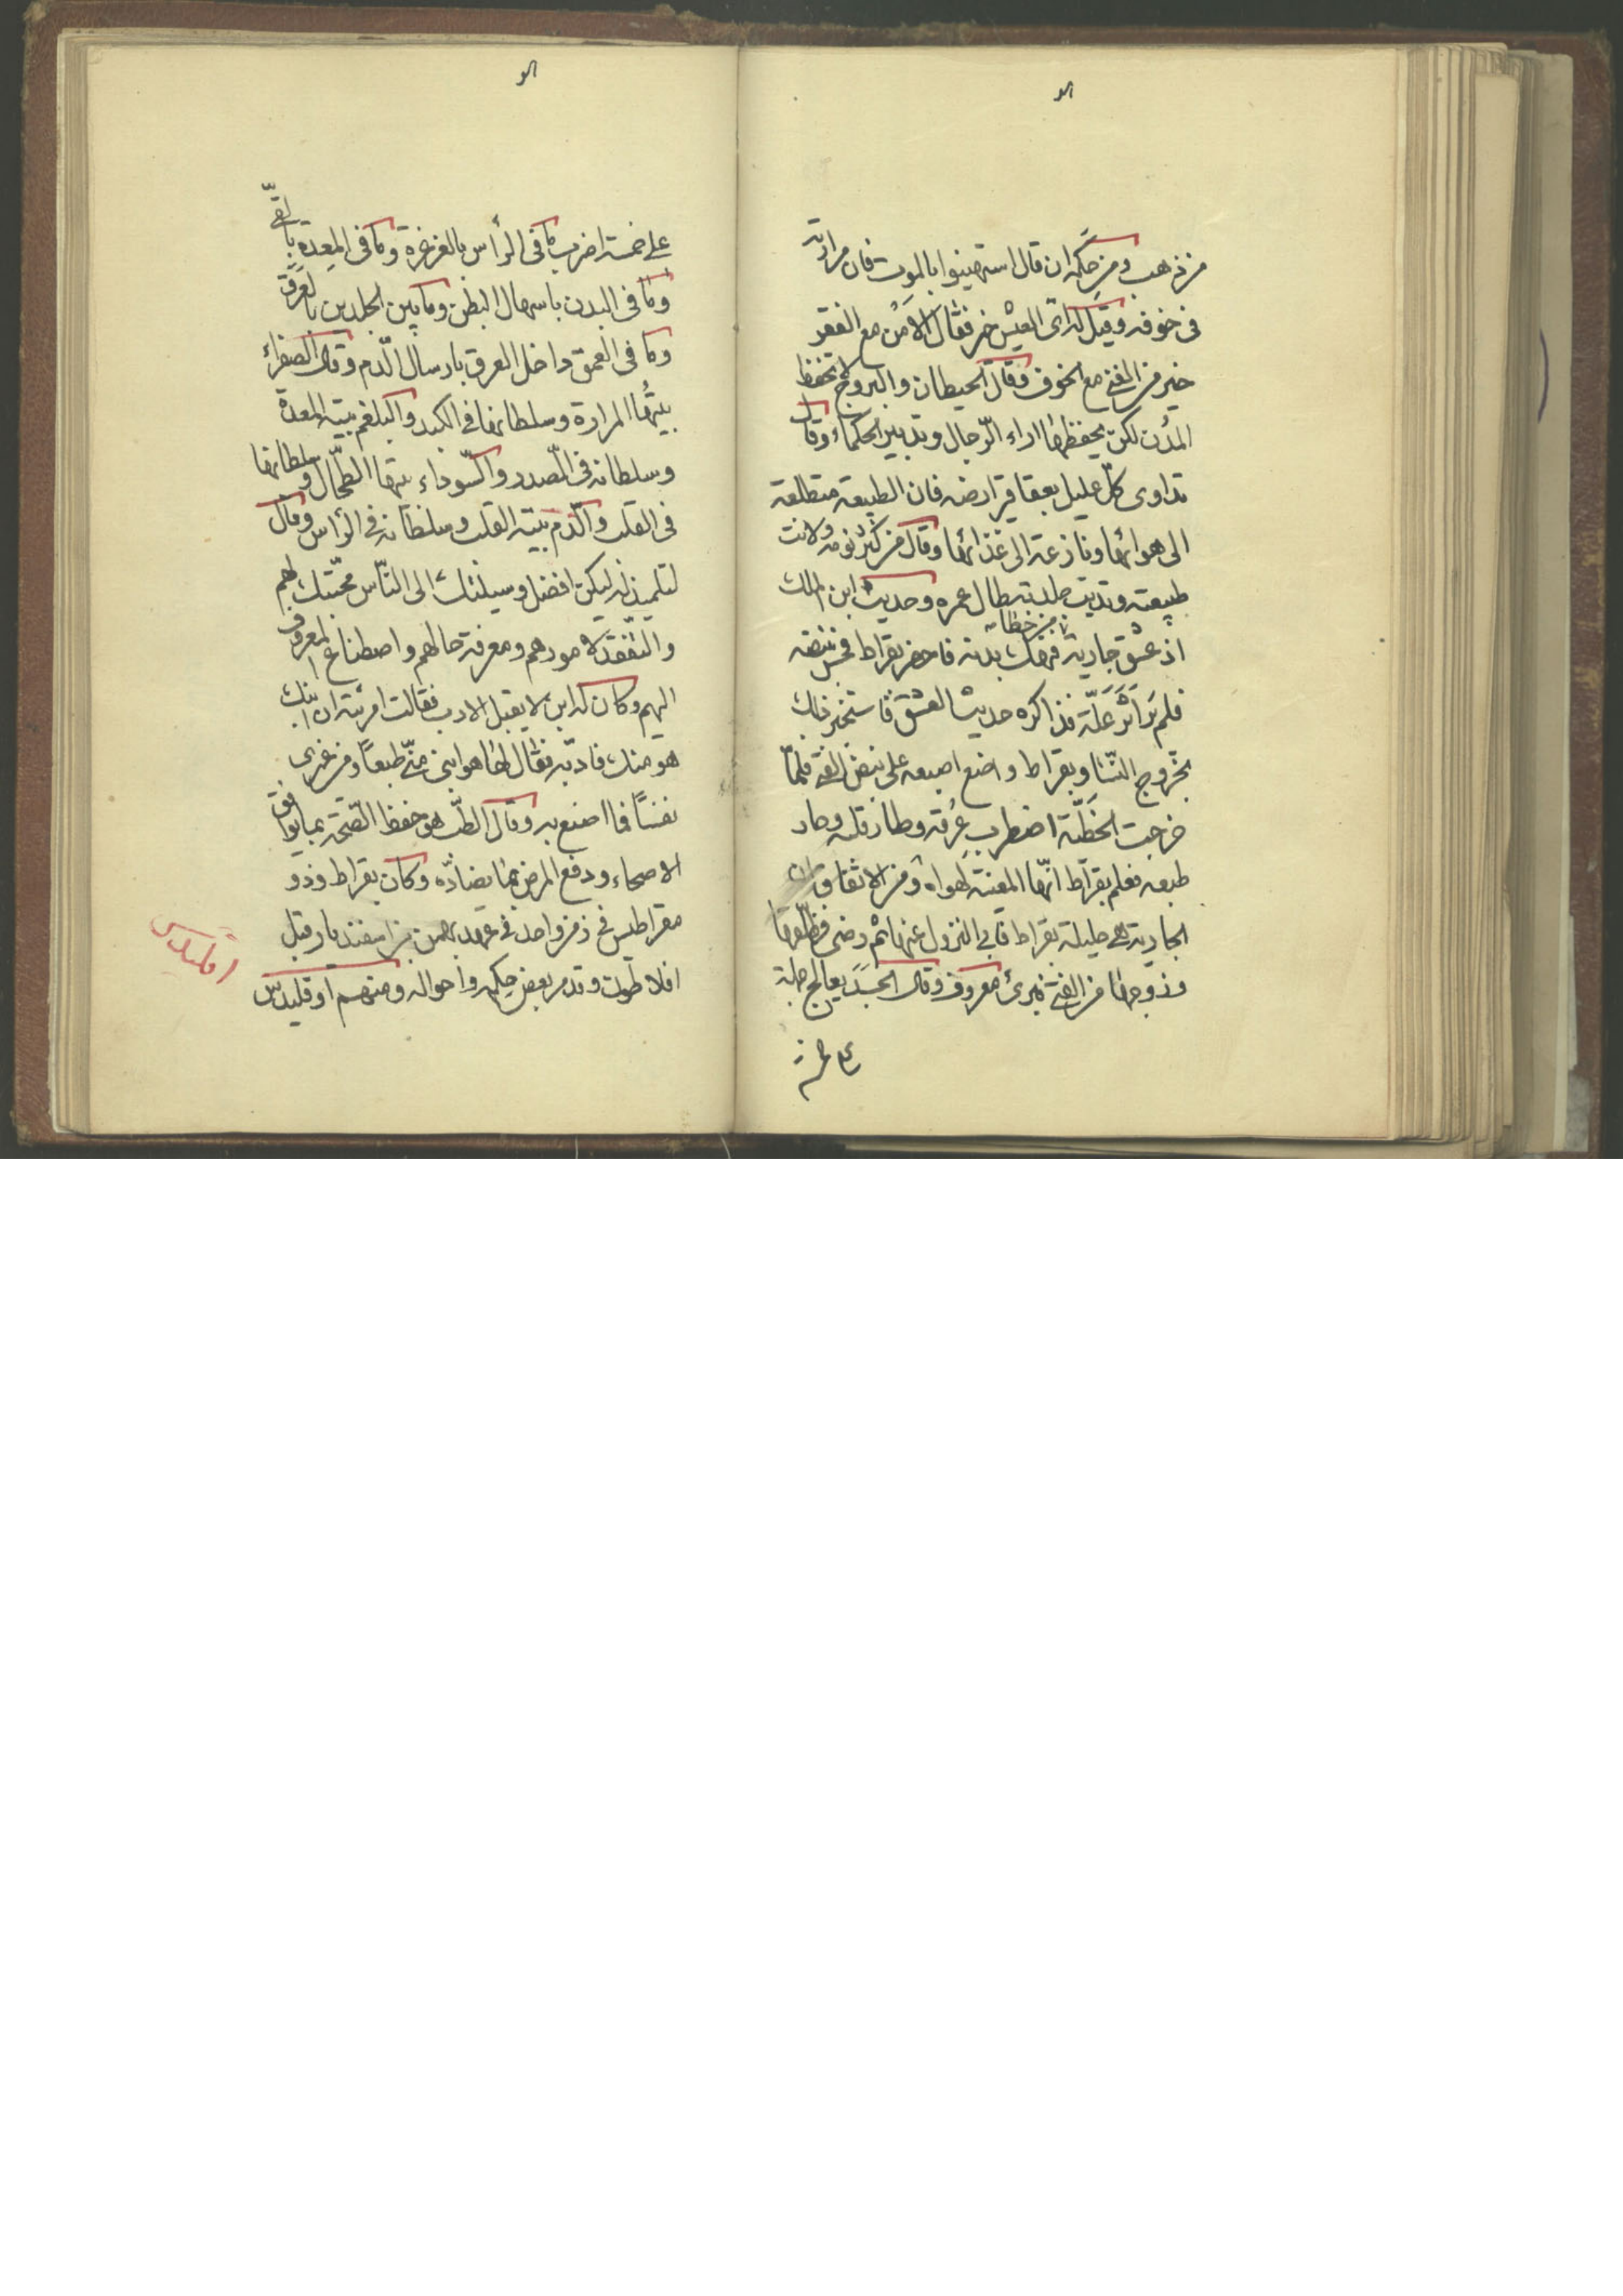 هو
من ذهب ومن حكمه ان قال استهينوا بالموت فان مرارته
فى خوفه وقيل له اىّ العيش خير فقال الامن مع الفقر
خير من الغنى مع الخوف وقال الحيطان والبروج لا تحفظ
المدن لكن يحفظها اراء الرّجال وتدبير الحكماء وقال
تداوى كلّ عليل بعقاقير ارضه فان الطبيعة متطلعة
الى هوائها ونازعة الى غذائها وقال من كثر نومه ولانت
طبيعته ونديت جلدته طال عمره وحديث ابن الملك
اذ عشق جارية من خطايا فنهك بدنه فاحضر بقراط فجسّ نبضه
فلم ير اثر علّة فذاكره حديث العشق فاستخبر ذلك
بخروج النّسا وبقراط واضع اصبعه على نبض الفتى فلمّا
خرجت الخطيّة اضطرب عرقه وطار قلبه وحار
طبعه فعلم بقراط انّها المعيّنة لهواه ومن الاتفاق ان
الجارية هى حليلة بقراط فابى النزول عنها ثم رضى فطلّقها
وزوجها من الفتى فبرئ معروف وقال الجسد يعالج جملة
على خمسة
هو
على خمسة اضرب ما فى الرأس بالغرغرة وما فى المعدة بالقىّ
وما فى البدن باسهال البطن وما بين الجلدين بالعرق
وما فى العمق داخل العرق بارسال الدّم وقال الصفراء
بيتها المرارة وسلطانها فى الكبد والبلغم بيته المعدة
وسلطانه فى الصّدر والسّوداء بيتها الطّحال وسلطانها
فى القلب والدّم بيته القلب وسلطانه فى الرأس وقال
لتلميذ له ليكن افضل وسيلتك الى النّاس محبّتك لهم
والتّفقّد لامورهم ومعرفة حالهم واصطناع المعروف
اليهم وكان له ابن لا يقبل الادب فقالت امرئته ان ابنك
هو منك فادّبه فقال لها هو ابنى منّى طبعاً ومن غيرى
نفساً فما اصنع به وقال الطّب هو حفظ الصّحة بما يوافق
الاصحاء ودفع المرض بما يضادّه وكان بقراط وذو
مقراطيس فى زمن واحد فى عهد بهمن بن اسفنديار قبل
افلاطون وقد مر بعض حكمه واحواله ومنهم اوقليدس
اقليدس